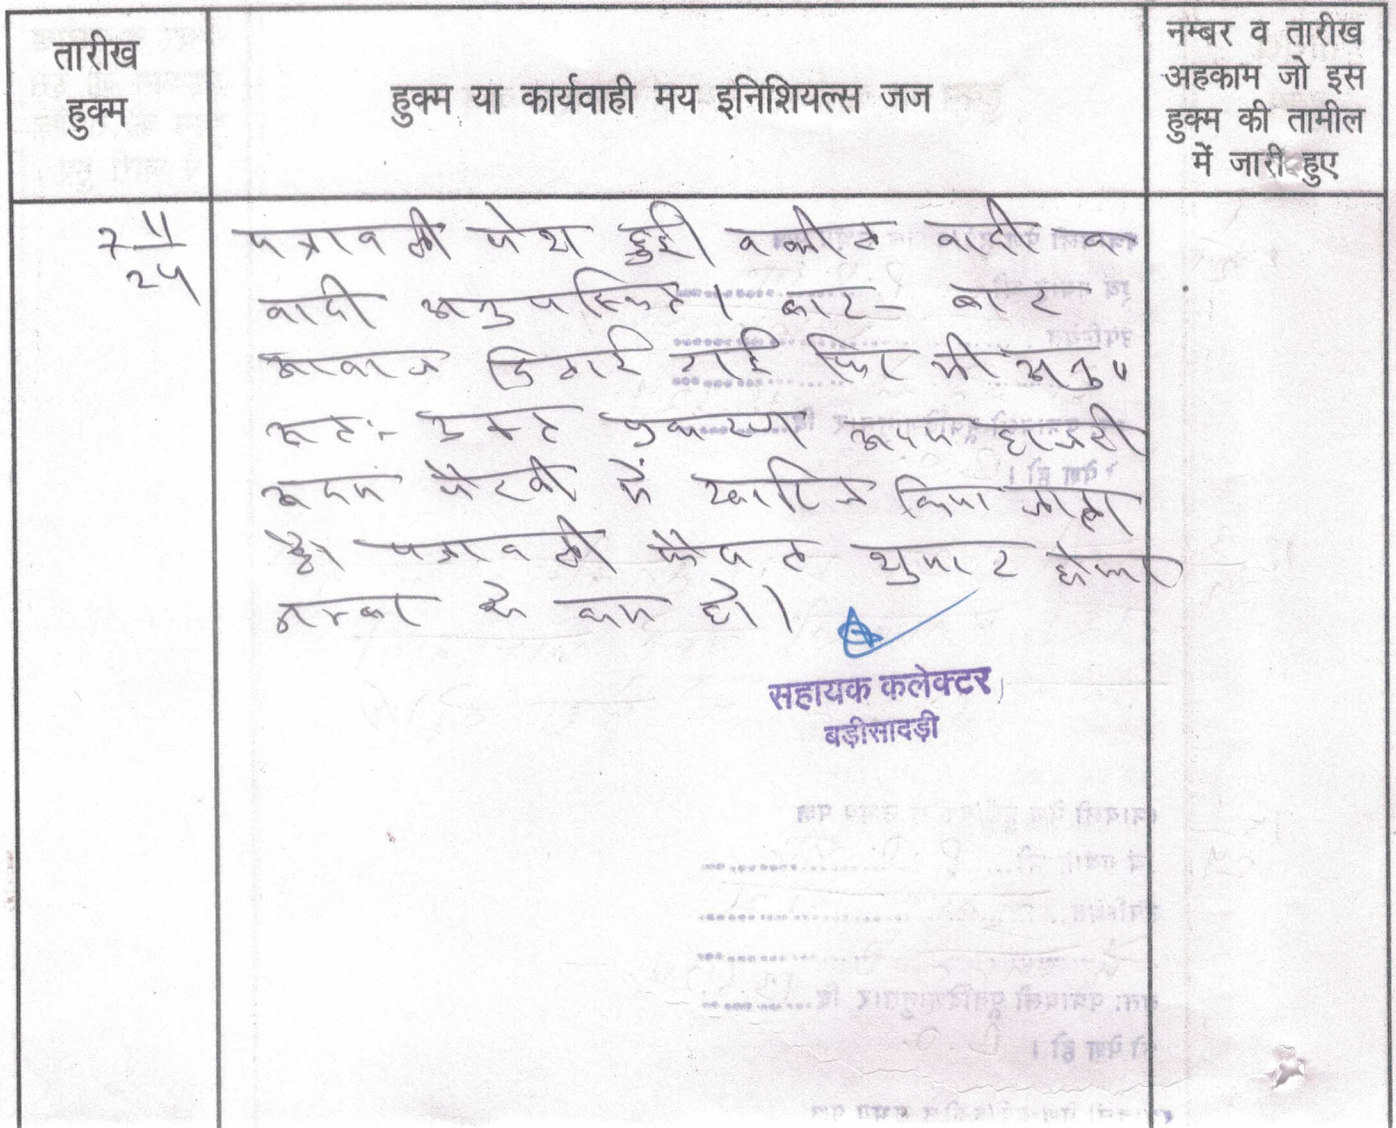 तारीख
हुक्म
हुक्म या कार्यवाही मय इनिशियल्स जज
नम्बर व तारीख
अहकाम जो इस
हुक्म की तामील
में जारी हुए
7 11
24
पत्रावली पेश हुई। वकील वादी व
वादी अनुपस्थित। बार-बार
आवाज दिलाई गई फिर भी अनु॰
अतः उक्त प्रकरण अदम हाजरी
अदम पैरवी में खारिज किया जाता
है। पत्रावली फैसल शुमार होकर
नम्बर से कम हो।
सहायक कलेक्टर
बड़ीसादड़ी